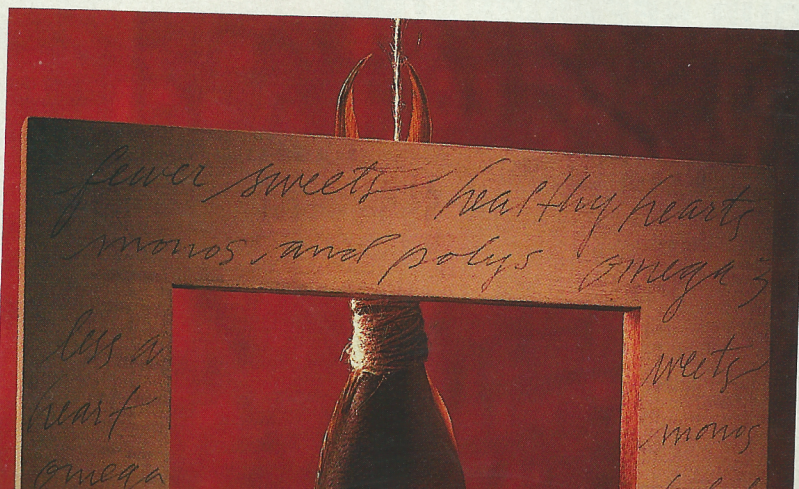 fewer sweets healthy hearts
monos and polys omega 3
less a
weets
heart
monos
omega